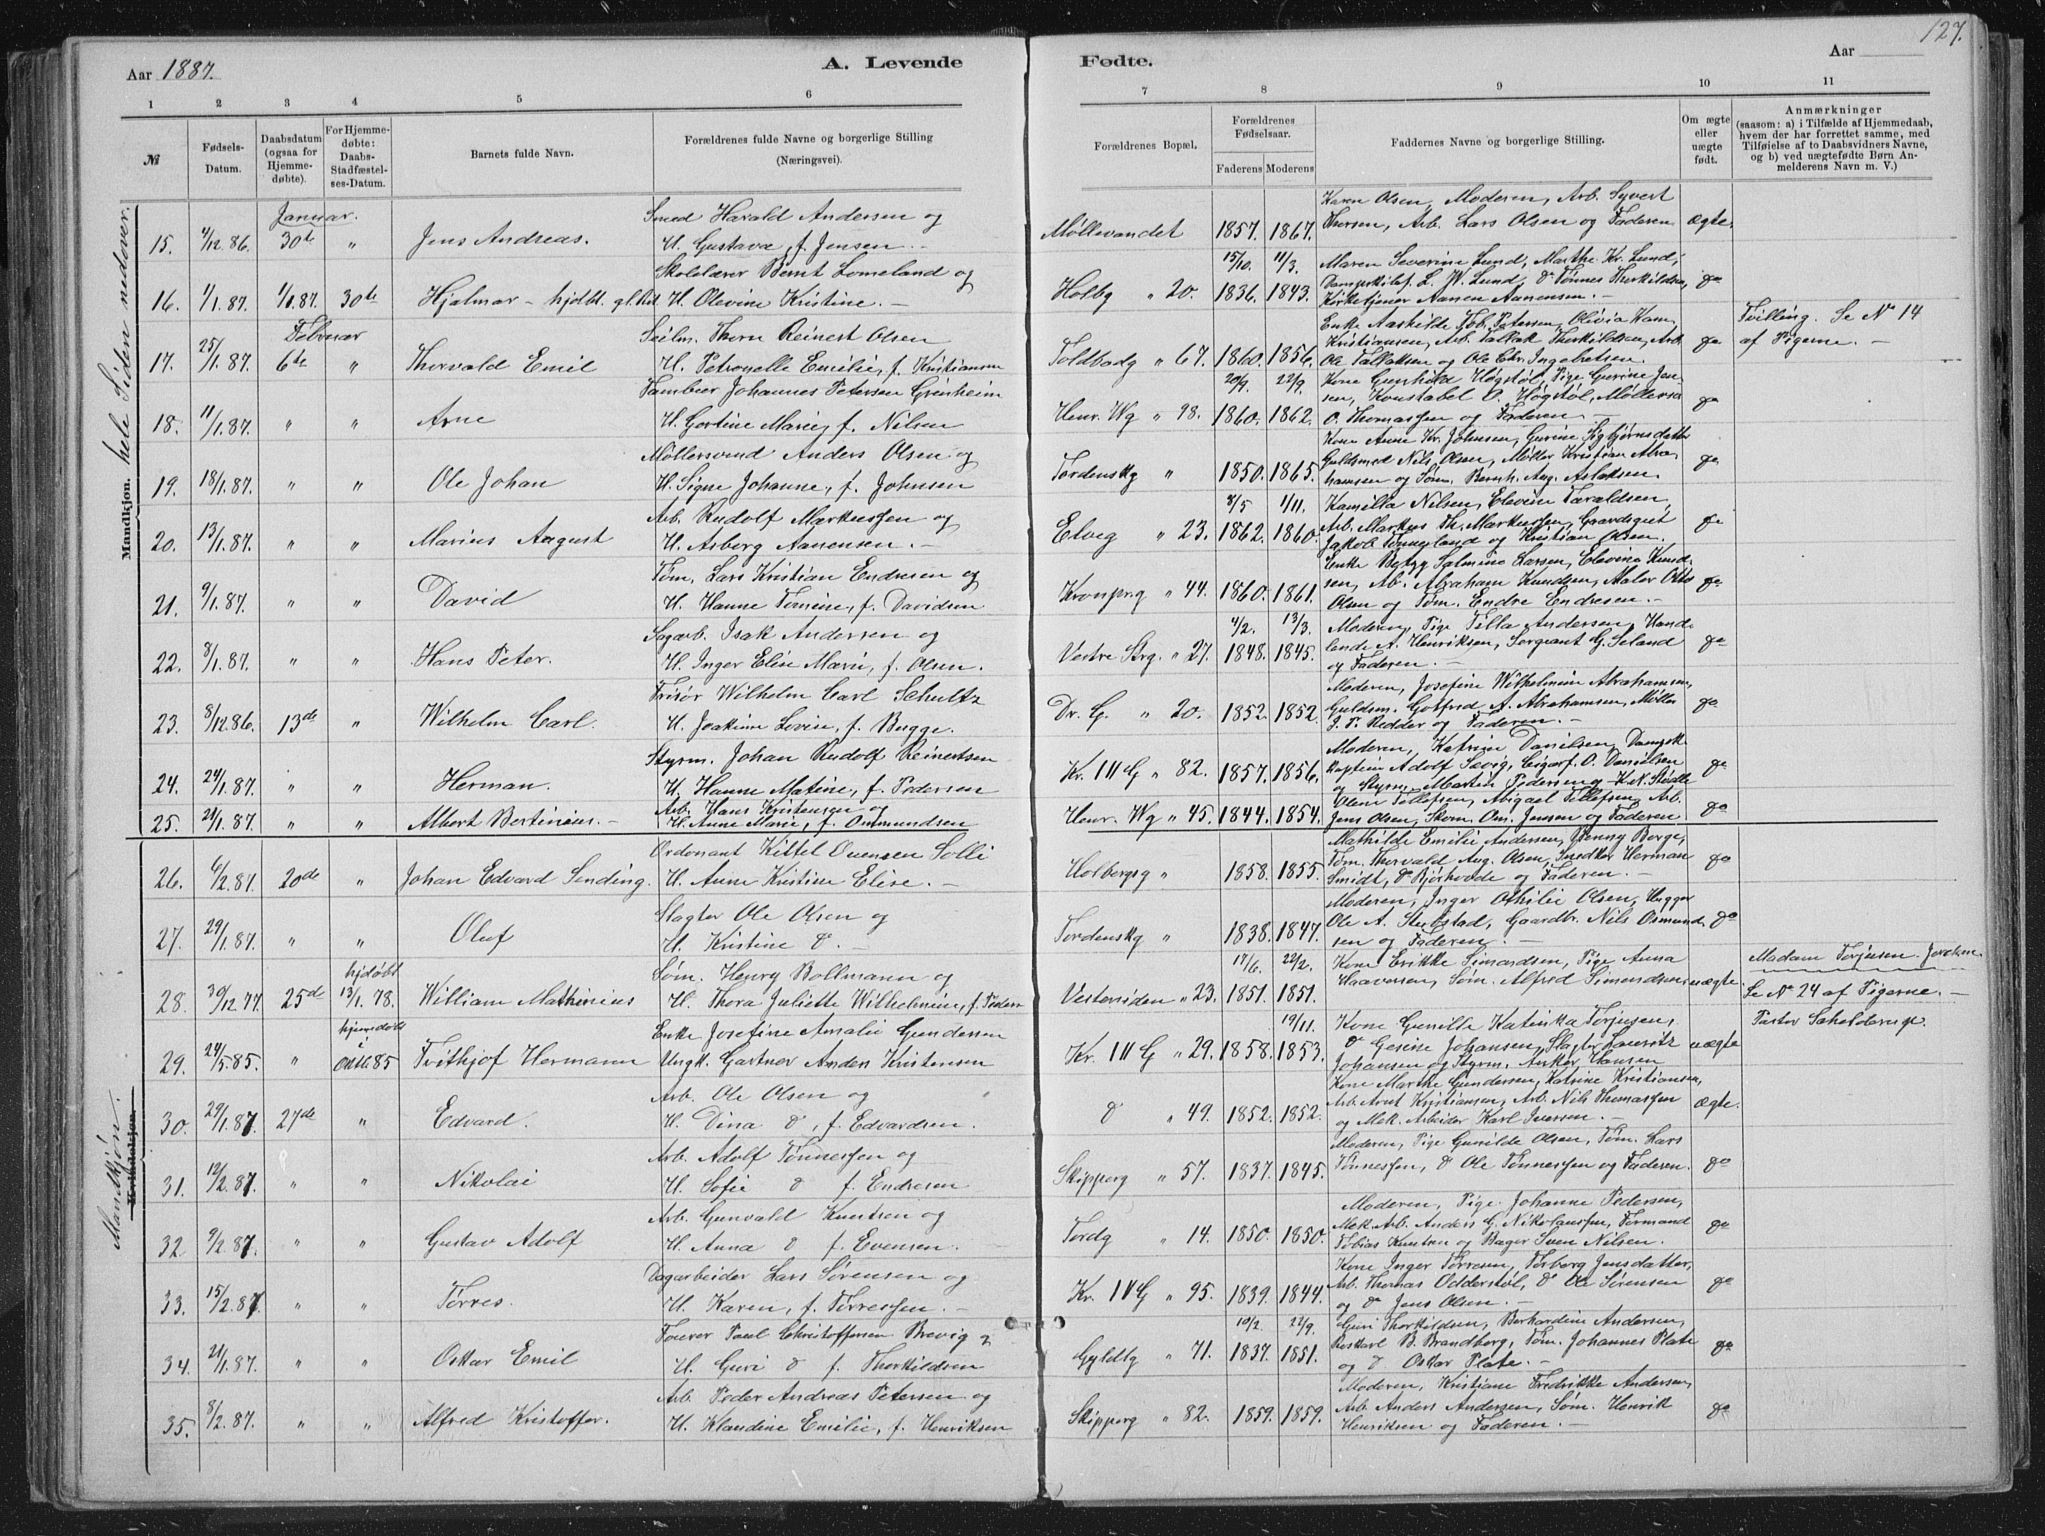 127.
Aar 1887.
A. Levende Fødte.
Aar
1 2 3 4 5 6 7 8 9 10 11
№
Fødsels-Datum.
Daabsdatum (ogsaa for Hjemme-døbte).
For Hjemme-døbte: Daabs-Stadfæstel-ses-Datum.
Barnets fulde Navn.
Forældrenes fulde Navne og borgerlige Stilling (Næringsvei).
Forældrenes Bopæl.
Forældrenes Fødselsaar.
Faderens Moderens
Faddernes Navne og borgerlige Stilling.
Om ægte eller uægte født.
Anmærkninger (saasom: a) i Tilfælde af Hjemmedaab, hvem der har forrettet samme, med Tilføielse af to Daabsvidners Navne, og b) ved uægtefødte Børn An-melderens Navn m. V.)
Mandkjøn. hele Siden nedover.
Januar.
Karen Olsen, Moderen, Arb. Syvert
Smed Harald Andersen og
15. 4/12.86. 30te " Jens Andreas. H. Gustava, f. Jensen. — Møllevandet 1857. 1867. Thersen, Arb. Lars Olsen og Faderen ægte.
Skolelærer Bernt Lomeland og 15/10. 11/3. Maren Severine Lund, Marthe Kr. Lund,
16. 1/1.87. 1/1.87. 30te Hjalmar - hjdbt. H. Olevine Kristine. — Holbg " 20. 1836. 1843. Dampskibsf. L. W. Lund, do Tønnes Therkildsen, do
Kirketjener Aanen Aanensen. —
Februar
Seilm. Thorn Reinert Olsen Enke Aashilde Job. Petersen, Olivia Kam.
17. 25/1.87. 6te " Thorvald Emil H. Petronelle Emilie, f. Kristiansen Toldbodg " 67. 1860. 1856. Kristiansen, Arb. Tallak Therkildsen, Arb. do Tvilling. Se No 14
Ole Tallaksen og Ole Chr. Ingebretsen. af Pigerne. —
Tambur Johannes Petersen Grønheim 20/9. 22/9. Kone Gunhild Høgstøl, Pige Gurine Jen-
18. 11/1.87. " " Arne H. Gortine Marie, f. Nilsen Henr. Wg " 98. 1860. 1862. sen, Konstabel O. Høgstøl, Møllersv. do
O. Thomassen og Faderen. —
Møllersvend Anders Olsen og Kone Anne Kr. Johnsen, Gurine Sigbjørnsdatter
19. 18/1.87. " " Ole Johan H. Signe Johanne, f. Johnsen Tordenskg " 1850. 1865. Guldsmed Nils Olsen, Møller Kristian Abra- do
hamsen og Tøm. Bernh. Aug. Aslaksen.
Arb. Rudolf Markussen og 8/5 1/11. Kamilla Nilsen, Elevine Taraldsen,
20. 13/1.87. " " Marius August H. Asborg Aanensen. — Elveg " 23. 1862. 1860. Arb. Markus Th. Markussen, Gravdsgut do
Jakob Tønnesland og Kristian Olsen.
Tøm. Lars Kristian Endresen og Enke Berty Salmine Larsen, Elevine Knud-
21. 9/1.87. " " David H. Hanne Tomine, f. Davidsen Kronprg " 44. 1860. 1861. sen, Arb. Abraham Knudsen, Maler Otto do
Olsen og Tøm. Endre Endresen. —
Sagarb. Isak Andersen og 4/2. 13/3. Moderen, Pige Tilla Andersen, Hand-
22. 8/1.87. " " Hans Peter. H. Inger Elise Marie, f. Olsen. Vestre Strg. " 27. 1848. 1845. lende A. Henriksen, Sergeant G. Seland do
og Faderen. —
Frisør Wilhelm Carl Schultz Moderen, Josefine Wilhelmine Abrahamsen,
23. 8/12.86. 13de " Wilhelm Carl. H. Joakime Lovise, f. Bugge. Dr. G. " 20. 1852. 1852. Guldsm. Gotfred A. Abrahamsen, Møller do
J. P. Redder og Faderen. —
Styrm. Johan Rudolf Reinertsen Moderen, Katrine Danilsen, Dampsk.
24. 24/1.87. " " Herman. H. Hanne Matine, f. Pedersen Kr. III G " 82. 1857. 1856. kaptein Adolf Sævig, Cigarf. O. Danielsen do
og Styrm. Martin Pedersen og K. N. Stødle
Arb. Hans Kristensen og Olene Tellefsen, Abigael Tellefsen, Arb.
25. 21/1.87. " " Albert Bertinius. — H. Anne Marie, f. Ommundsen Henr. Wg " 45. 1844. 1854. Jens Olsen, Skom. Om. Jensen og Faderen do
Ordonant Kittel Ovensen Solli Mathilde Emilie Andersen, Jenny Borge,
26. 6/2.87. 20de " Johan Edvard Sending. H. Anne Kristine Elise. — Holbergsg " 1858. 1855. Tøm. Thorvald Aug. Olsen, Snedker Herman do
Smidt, do Bjørhovde og Faderen. —
Slagter Ole Olsen og Moderen, Inger Othilie Olsen, Hugger
27. 29/1.87. " " Oluf H. Kristine do. — Tordenskg " 1838. 1847. Ole A. Stubstad, Gaardbr. Nils Osmund- do
sen og Faderen. —
hjdøbt Søm. Henry Bollmann og 17/6. 22/2. Kone Erikke Simonsen, Pige Anna Madam Torjusen. Jordem.
28. 30/12.77. 25de 13/1.78. William Mathinius H. Thora Juliette Wilhelmine, f. Pedern Vestersiden " 23. 1851. 1851. Haaversen, Søm. Alfred Simonsen uægte. Se No 24 af Pigerne. —
hjemdøbt i Enke Josefine Amalie Gundersen 19/11. Kone Gunille Katinka Torjusen, Pastor
29. 24/5.85. " Oktb 85 Frithjof Hermann Ungk. Gartner Anders Kristensen Kr. III G " 29. 1858. 1853. do Gesine Johansen, Slagter Lauritz uægte
Johansen og Styrm. Anker Hansen
Mandkjøn.
Kvindekjøn.
Arb. Ole Olsen og Kone Marthe Gundersen, Katrine Kristiansen,
30. 29/1.87. 27de " Edvard. H. Dina do, f. Edvardsen. do " 49. 1852. 1852. Arb. Arnt Kristiansen, Arb. Nils Thomassen ægte.
og Mek. Arbeider Karl Iversen. —
Arb. Adolf Tønnessen og Moderen, Pige Gunilde Olsen, Tøm. Lars
31. 12/2.87. " " Nikolai H. Sofie do f. Endresen Skipperg " 57. 1837. 1845. Tønnessen, do Ole Tønnessen og Faderen. do
Arb. Gunvald Knutsen og Moderen, Pige Johanne Pedersen,
32 9/2.87. " " Gustav Adolf H. Anna do f. Evensen. Tordg " 14. 1850. 1850. Mek. Arb. Anders G. Nikolaussen, Formand do
Tobias Knutsen og Bager Sven Nilsen.
Dagarbeider Lars Sørensen og Kone Inger Torresen, Torborg Jensdatter,
33. 15/2.87. " " Tørres. H. Karen, f. Tørressen. — Kr. IV G " 95. 1839. 1844. Arb. Thomas Odderstøl, do Ole Sørensen do
og do Jens Olsen. —
Tourer Paul Christoffersen Brevig og 10/2. 22/9. Guri Thorkildsen, Berhardine Andersen,
34. 21/1.87. " " Oskar Emil H. Guri do f. Thorkildsen Gyldlg " 71. 1837. 1851. Postkarl B. Brandborg, Tøm. Johannes Plate do
og do Oskar Plate. —
Arb. Peder Andreas Petersen og Moderen, Kristiane Fredrikke Andersen,
35. 8/2.87. " " Alfred Kristoffer. H. Klaudine Emilie, f. Henriksen Skipperg " 82. 1859. 1859. Arb. Anders Andersen, Søm. Henrik do
Henriksen og Faderen. —